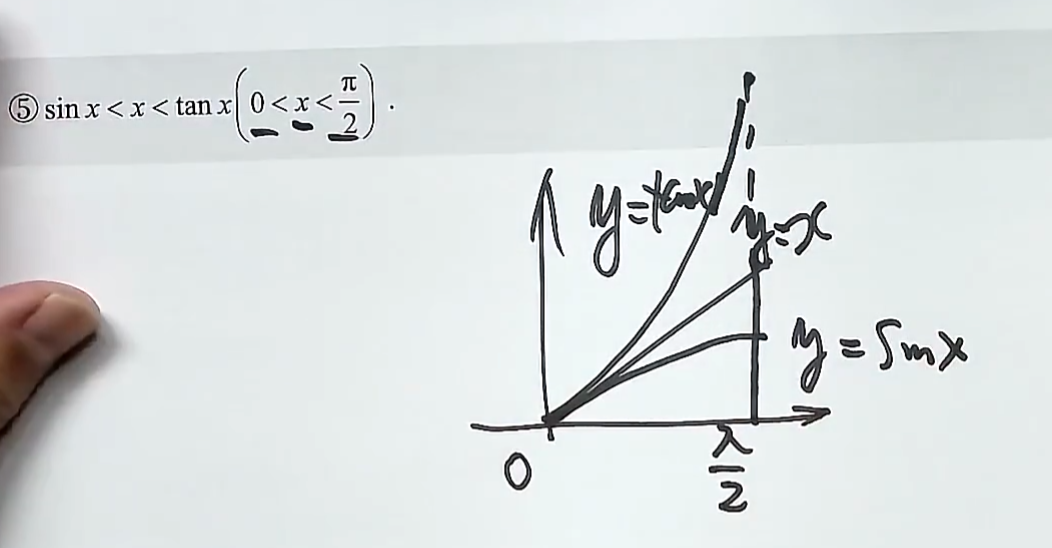 ⑤ sin x < x < tan x (0 < x < π/2).
y=tanx
y=x
y=sinx
0
π/2